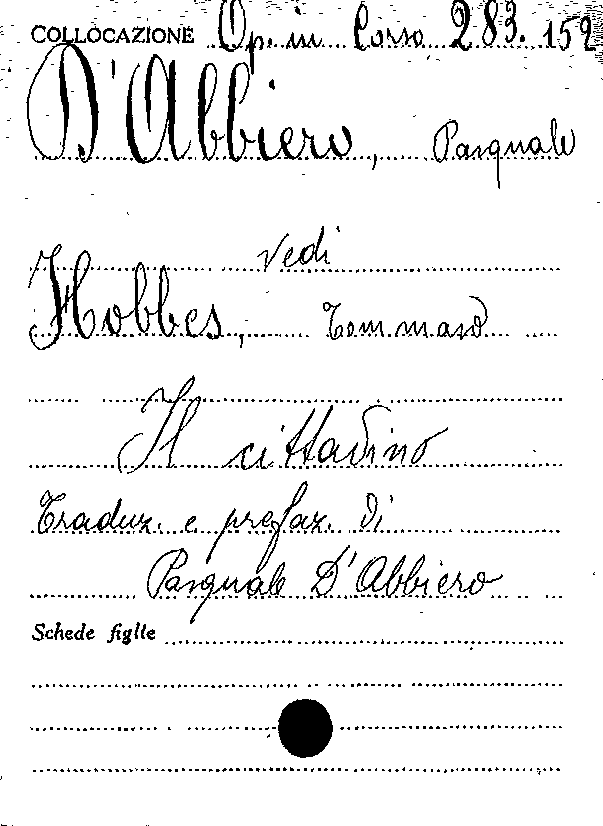 COLLOCAZIONE Op. in Corso 283. 152
D'Abbiero, Pasquale
vedi
Hobbes, Tommaso
Il cittadino
Traduz. e prefaz. di
Pasquale D'Abbiero
Schede figlie